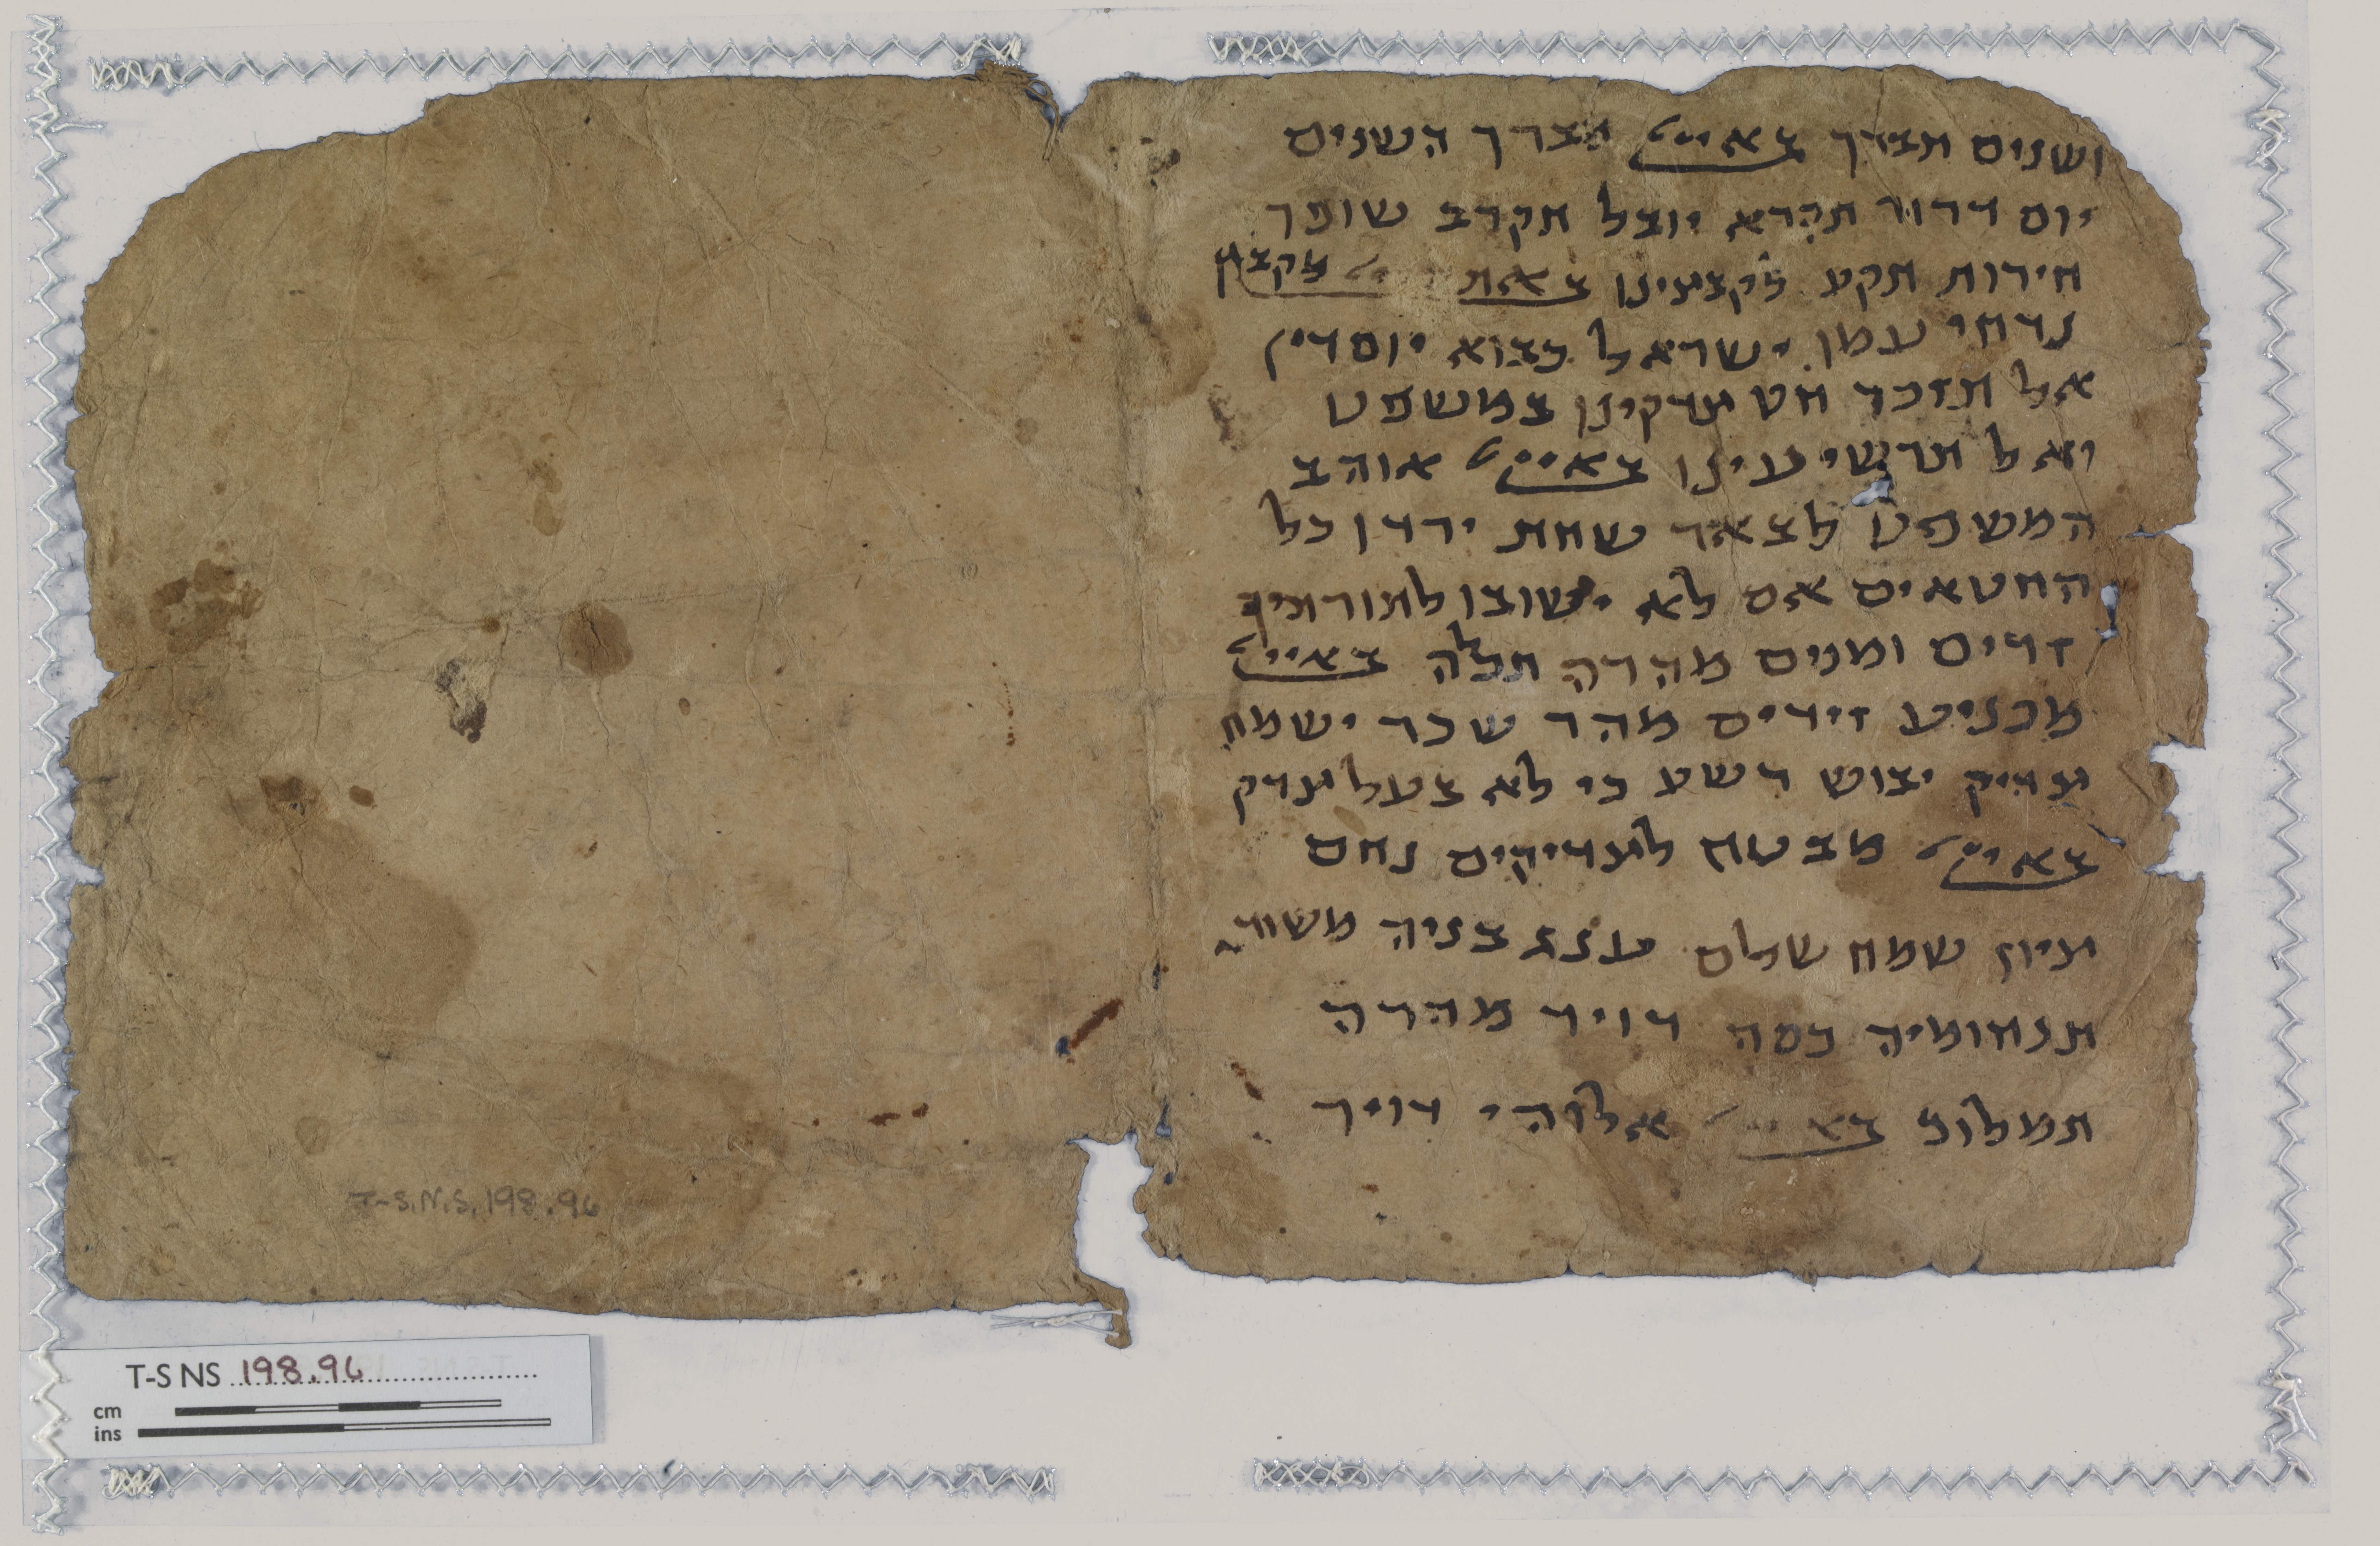 ושנים תברך באיי מברך השנים
יום דרור תקרא יובל תקרב שופר
חירות תקע לקבצינו באת מקבץ
נדחי עמו ישראל בבוא יום דין
אל תזכר חט צדקינו במשפט
ואל תרשיעינו באיי אוהב
המשפט לבאר שחת ירדו כל
החטאים אם לא ישובו לתורתיך
זדים ומנים מהרה תכלה באיי
מכניע זידים מהר שכר ישמח
צדיק יבוש רשע כי לא בעל צדק
באיי מבטח לצדיקים נחם
ציון שמח שלם ענג בניה משוד
תנחומיה כסה דויד מהרה
תמלוך באיי אלוהי דויד
T-S.N.S. 198.96
T-S NS 198.96
cm
ins